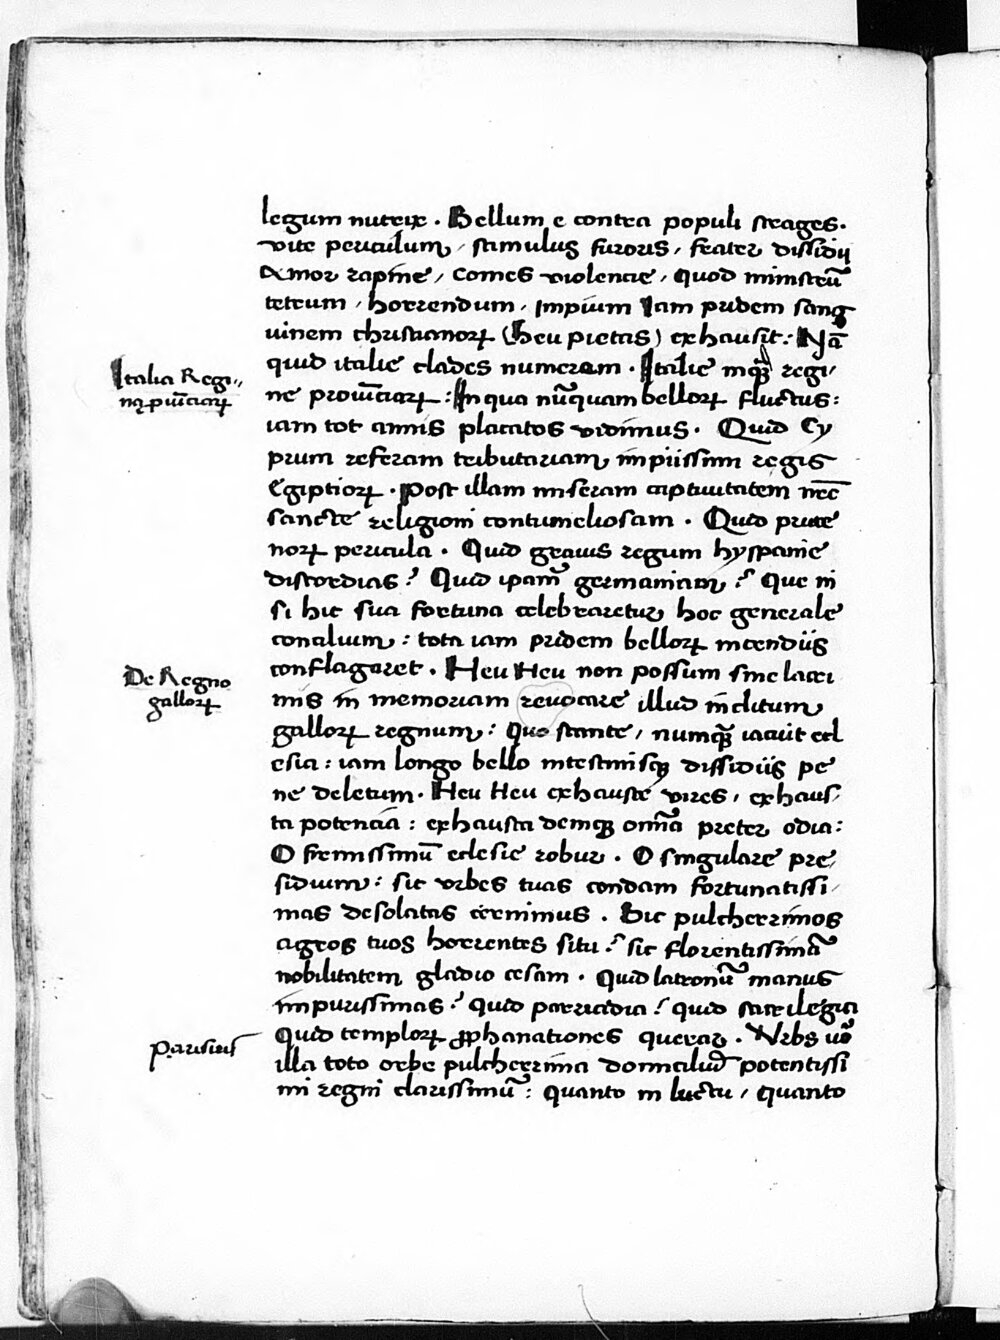 legum nutrix . Bellum e contra populi strages .
vite periculum , stimulus furoris , frater dissidij
Amor rapine , Comes violencie , quod ministrū
tetrum , horrendum , impium Iam pridem sang
uinem christianorꝝ ( heu pietas ) exhausit : Nā
quid italie clades numerem . Italie inqꝫ regi,
Italia Regi,,
na ꝓuīciarꝝ
ne prouīciarꝝ : In qua nūquam bellorꝝ fluctus :
iam tot annis placatos vidimus . Quid Cy
prum referam tributariam impiissimi regis
Egiptiorꝝ . Post illam miseram captiuitatem nec̄
sancte religioni contumeliosam . Quid prute
norꝝ pericula . Quid graius regum hyspanie
discordias ? Quid ipam̄ germaniam ? Que ni
si hic sua fortuna celebraretur hoc generale
concilium : tota iam pridem bellorꝝ incendijs
conflagaret . Heu Heu non possum sine lacri
De Regno
gallorꝝ
mis in memoriam revocare illud inclitum
gallorꝝ regnum : Quo stante , numqꝫ iacuit eccl
esia : iam longo bello intestinisqꝫ dissidijs pe
ne deletum . Heu Heu exhauste vires , exhaus,
ta potencia : exhausta deniqꝫ omīa preter odia :
O firmissimū eclesie robur . O singulare pre,
sidium : sic vrbes tuas condam fortunatissi,
mas desolatas cernimus . Sic pulcherrimos
agros tuos horrentes situ ? sic florentissimā
nobilitatem gladio cesam . Quid latronū manus
impurissimas ? quid parricidia ? quid sacrilegia
Parisius
Quid templorꝝ ꝓphanationes querar . Vrbs uo͛
illa toto orbe pulcherrima domiciliū potentissi
mi regni clarissimū : quanto in luctu , quanto